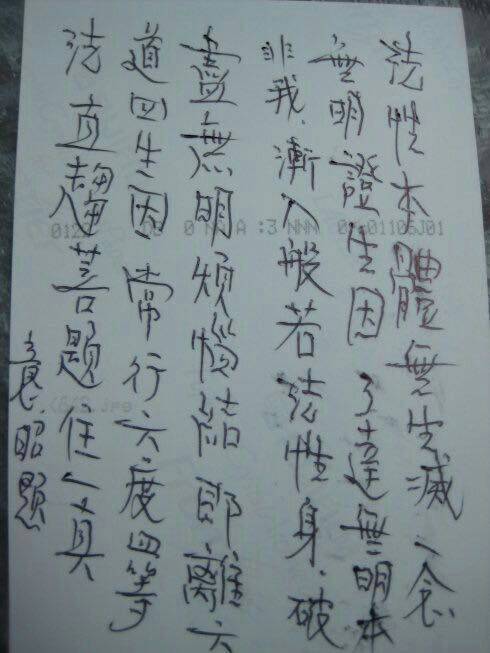 法性本體無生滅一念
無明證生因 了達無明本
非我.漸入般若法性身.破
盡無明煩惱結 即離六
道四生因 常行六度四等
法 直趨菩題任一真
袁.昭題